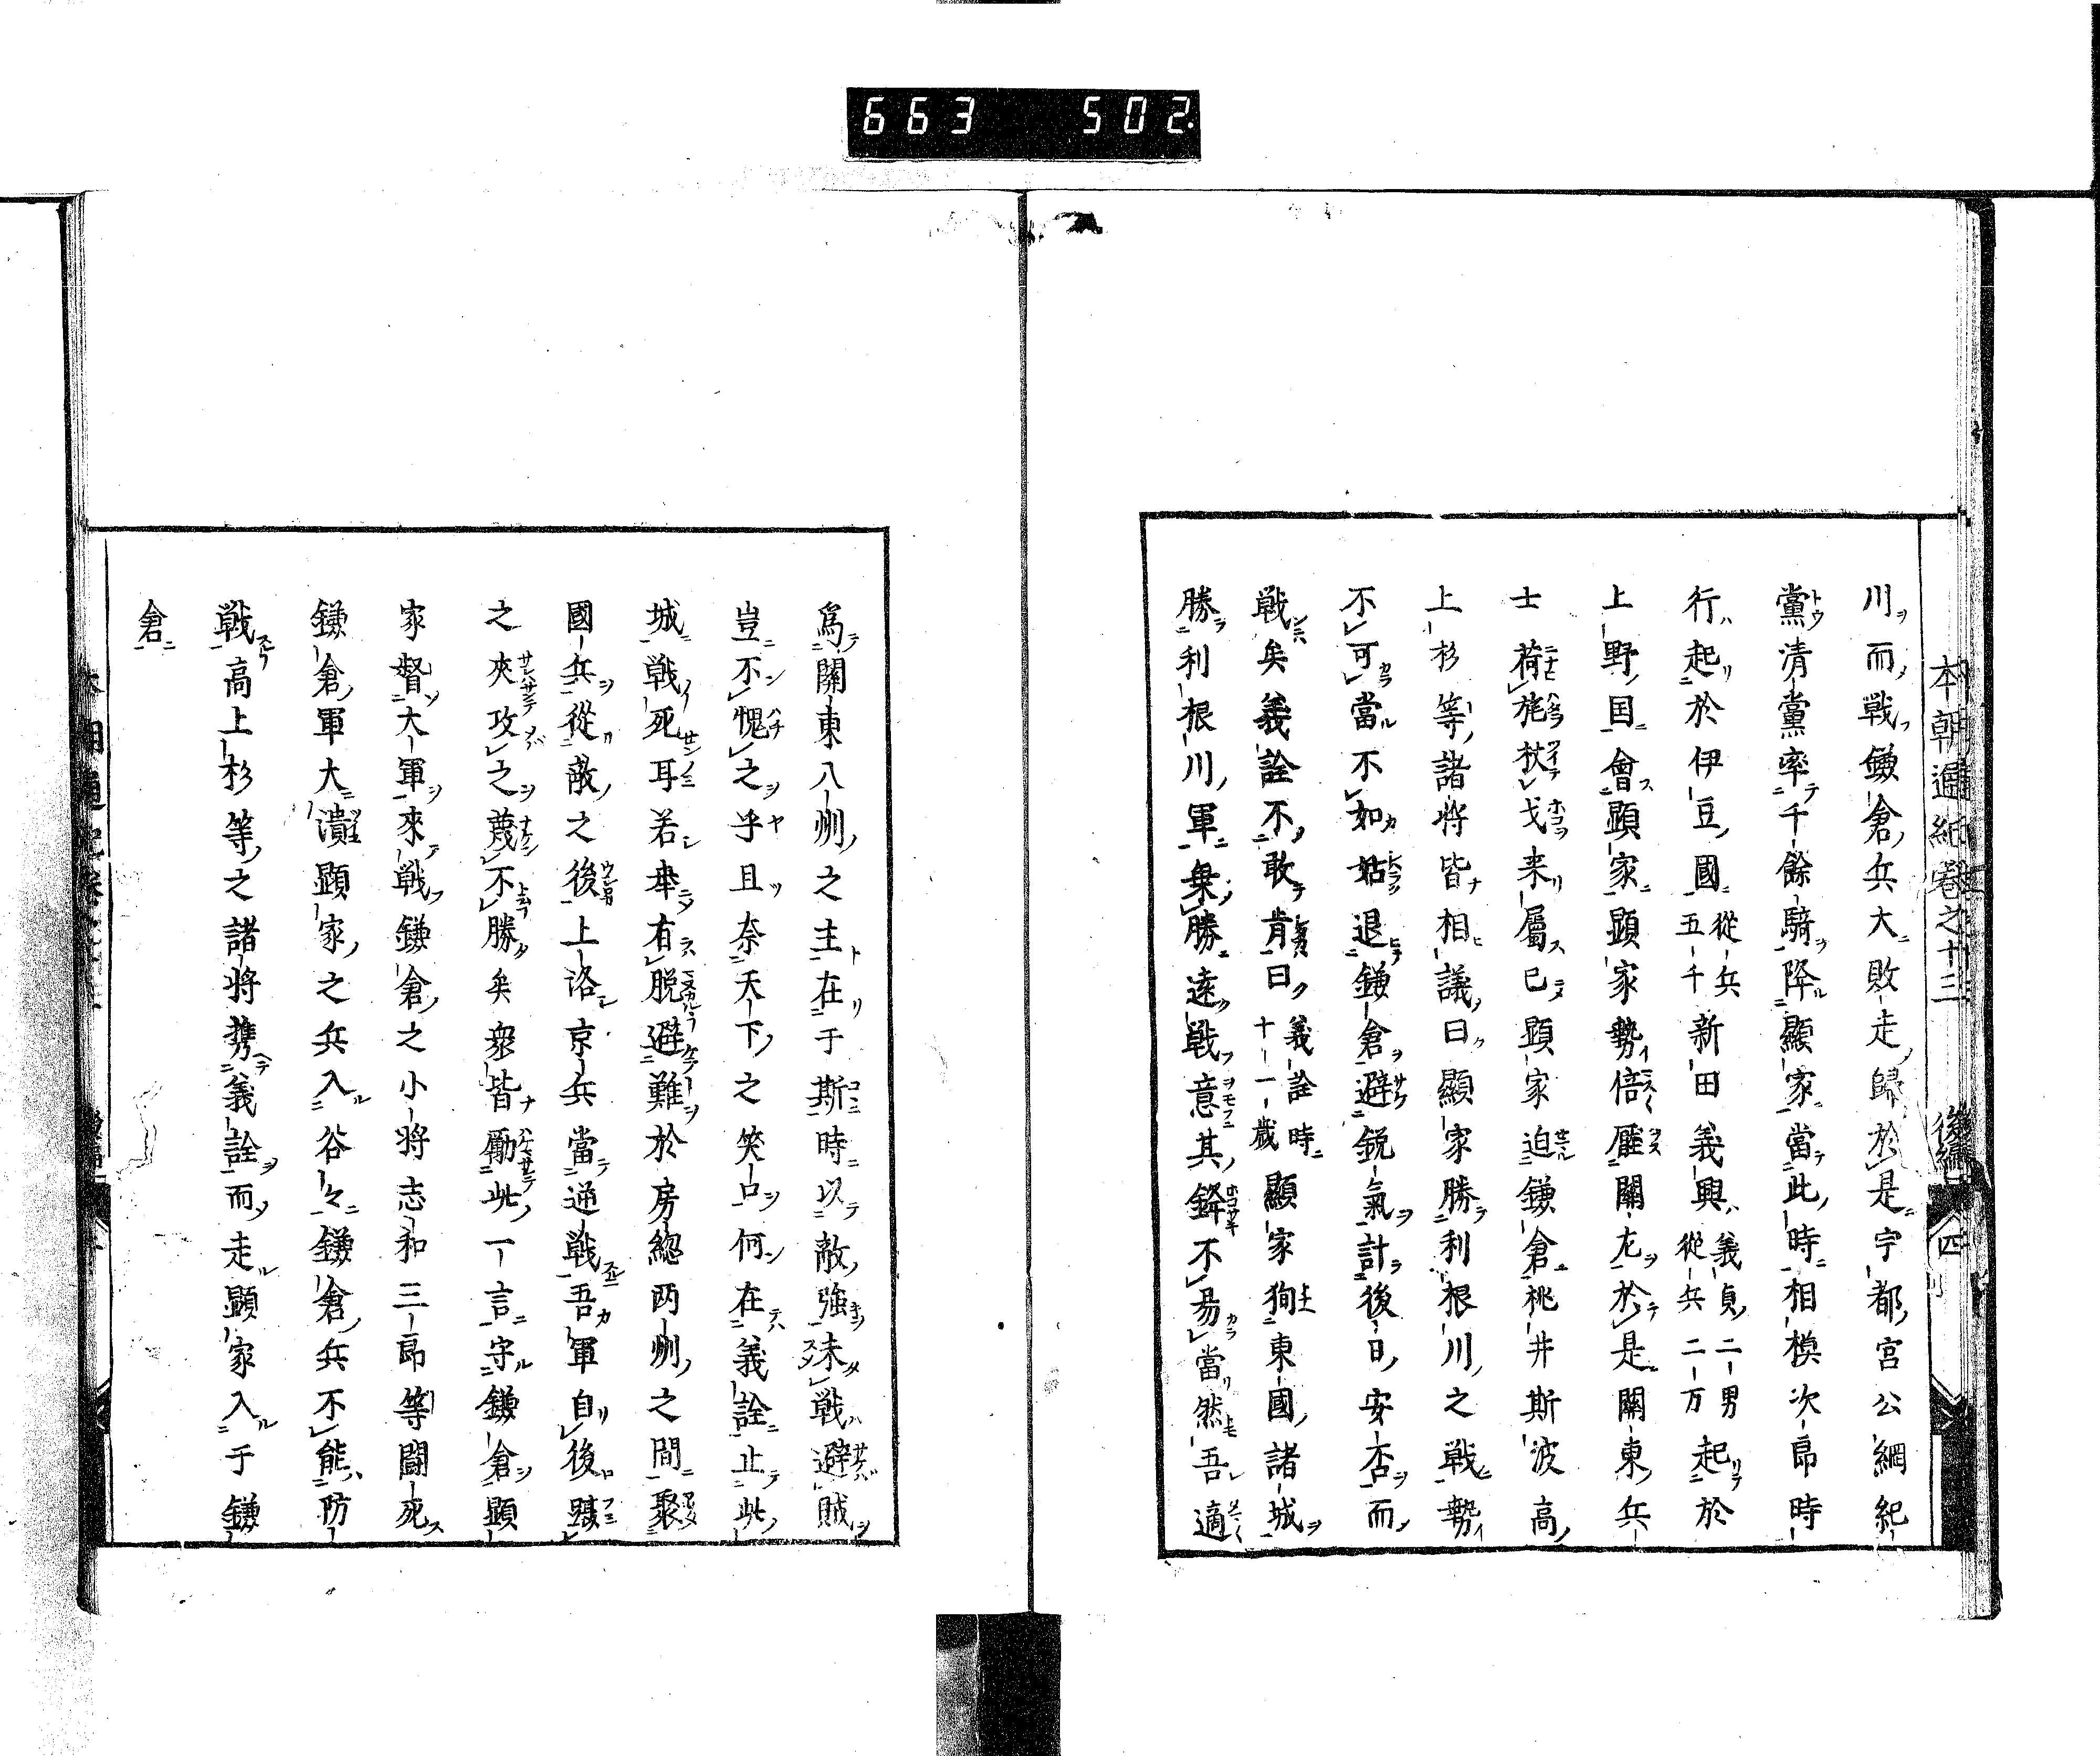 663 502.
本朝通紀卷之十三 後編 四
川而戰鎌倉兵大敗走歸於是宇都宮公綱紀
黨清黨率千餘騎降顯家當此時相模次郎時
行起於伊豆國從兵五千新田義興義貞二男從兵二万起於
上野国會顕家顕家勢倍歴關左於是關東兵
士荷旄杖戈来屬已顕家迫鎌倉桃井斯波高
上杉等諸将皆相議曰顯家勝利根川之戦勢
不可當不如姑退鎌倉避鋭氣計後日安否而
戦矣義詮不敢肯曰義詮時十一歳顯家狥東國諸城
勝利根川軍乗勝遠戦意其鋒不易當然吾適
為關東八州之主在于斯時以敵強未戦避賊
豈不愧之乎且奈天下之笑口何在義詮止此
城戦死耳若幸有脱避難於房総両州之間聚
國兵從敵之後上洛京兵當迊戦吾軍自後躡
之夾攻之蔑不勝矣衆皆勵此一言守鎌倉顕
家督大軍來戦鎌倉之小将志和三郎等闘死
鎌倉軍大潰顕家之兵入谷々鎌倉兵不能防
戦高上杉等之諸将携義詮而走顕家入于鎌
倉